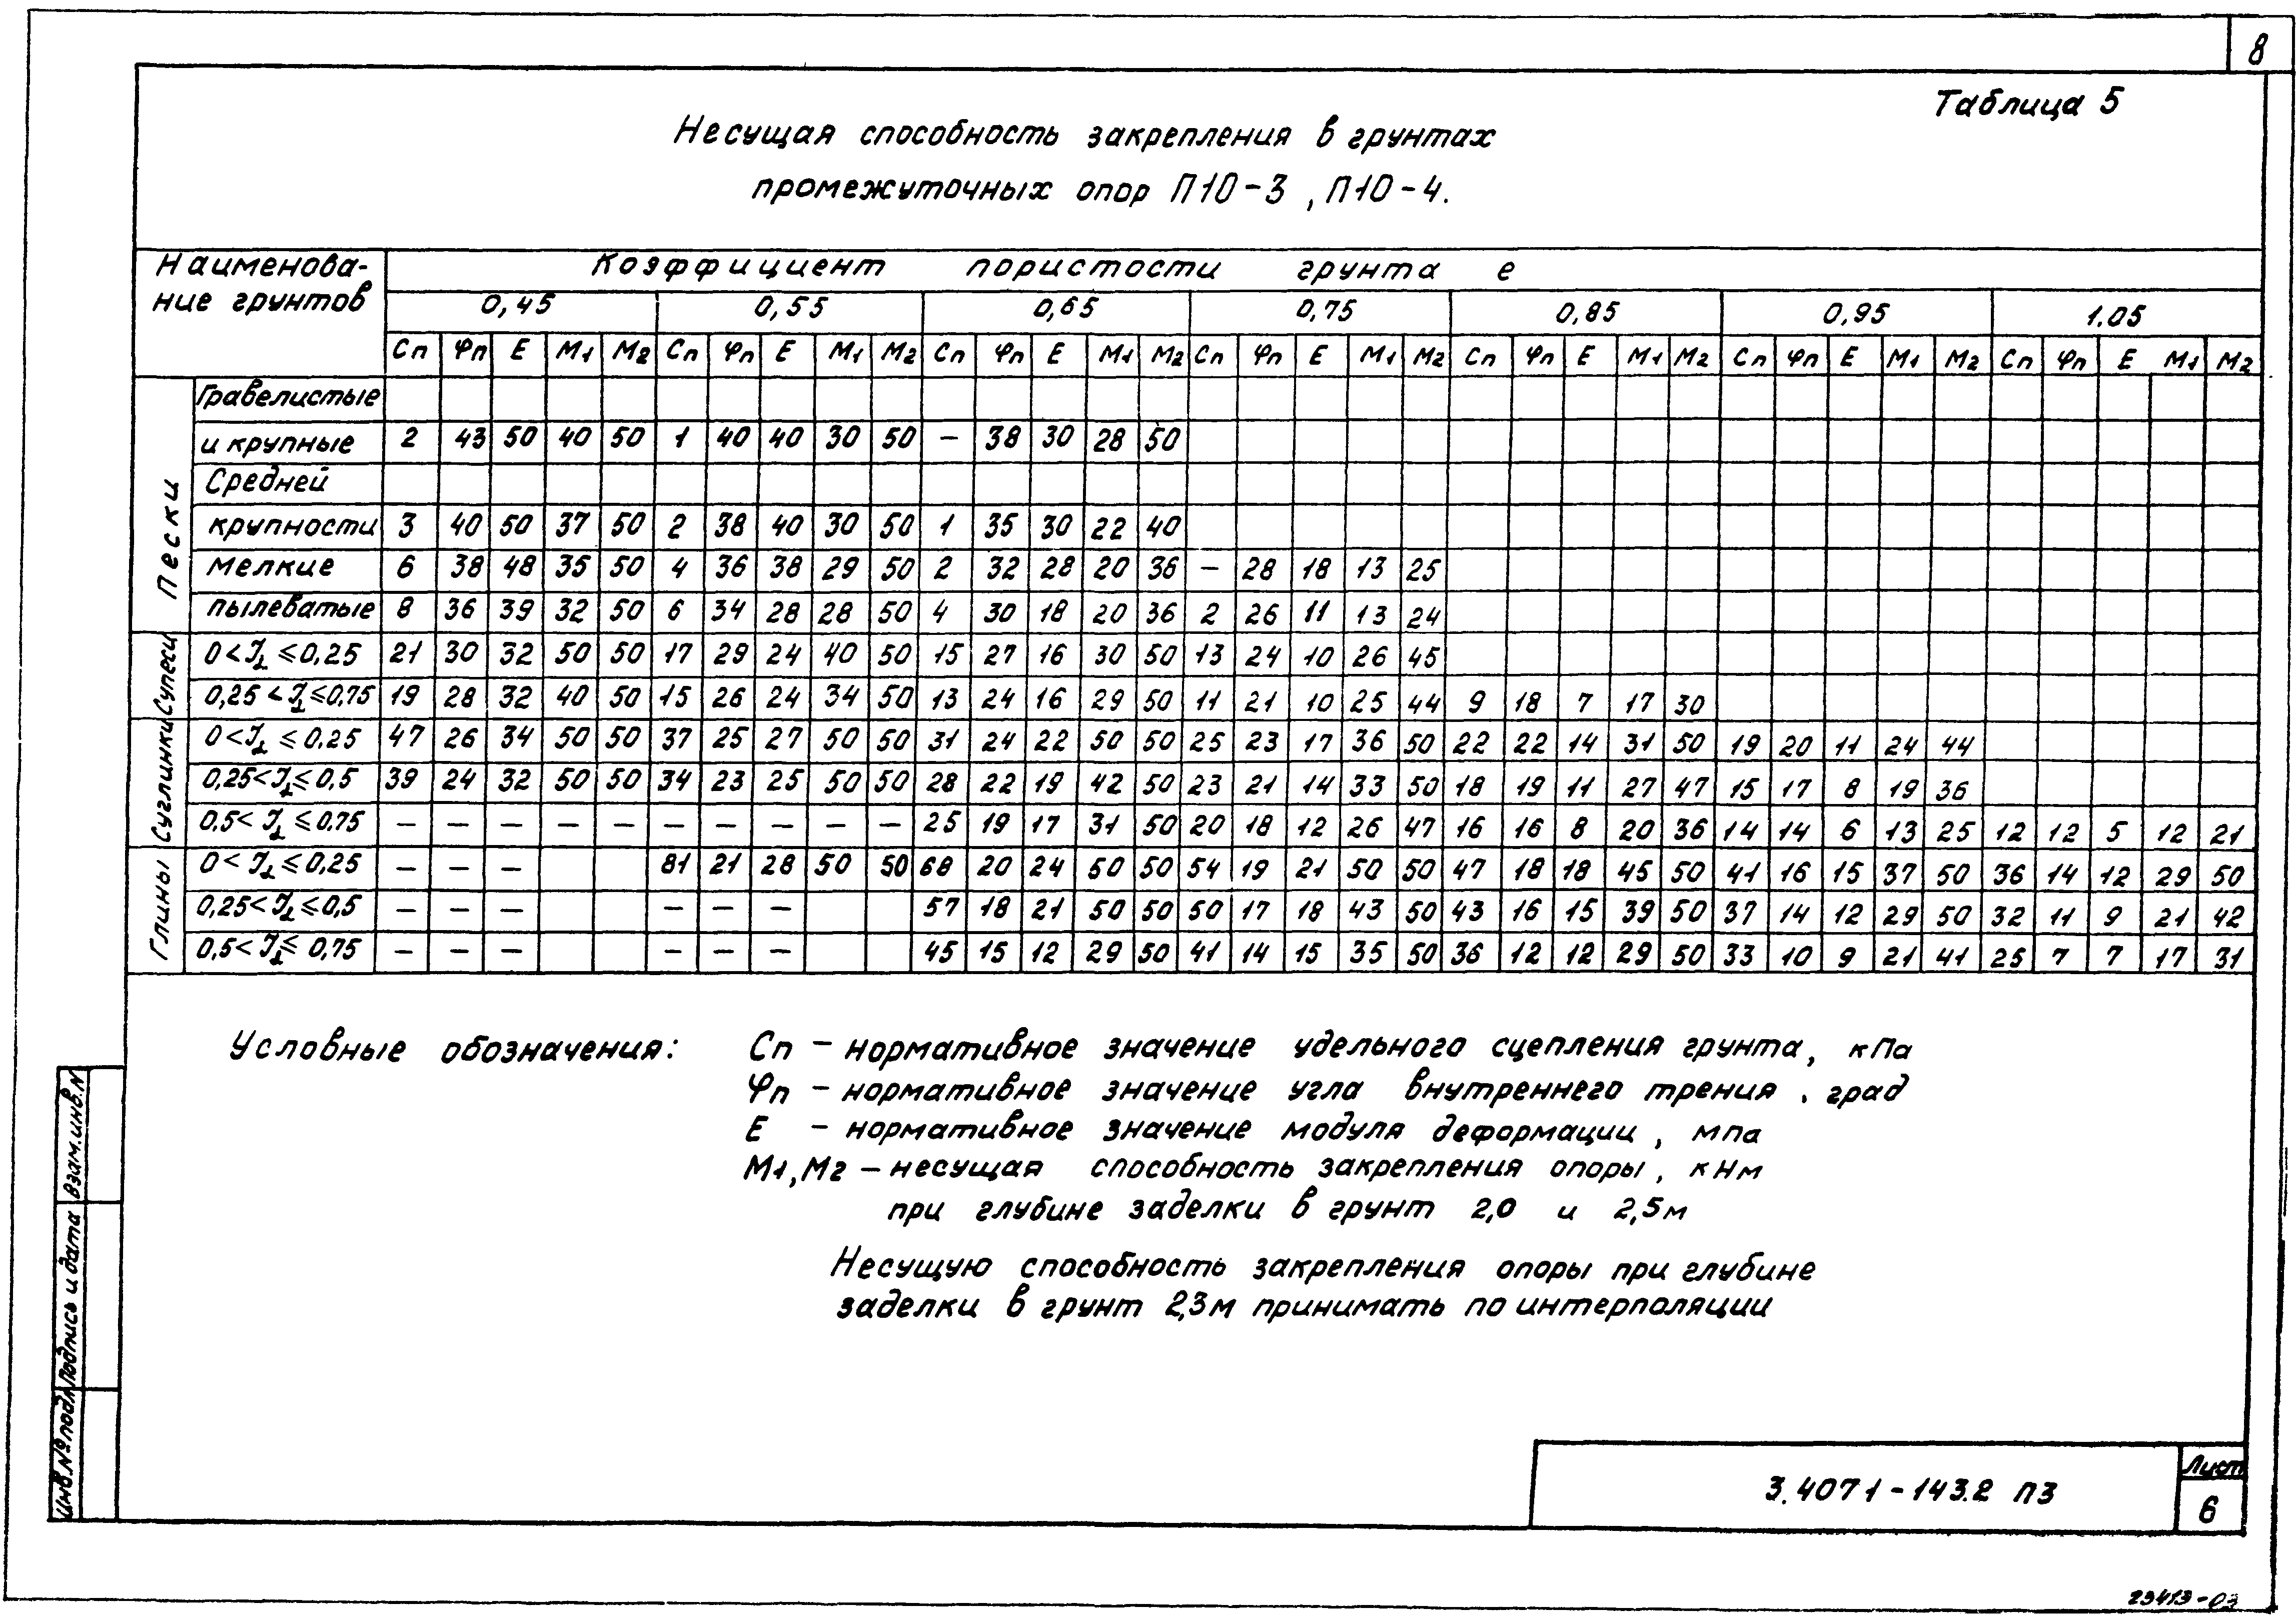 8
Таблица 5
Несущая способность закрепления в грунтах
промежуточных опор П10-3, П10-4.
Наименова-
ние грунтов
Коэффициент пористости грунта е
0,45 0,55 0,65 0,75 0,85 0,95 1.05
Сп φп Е М1 М2 Сп φп Е М1 М2 Сп φп Е М1 М2 Сп φп Е М1 М2 Сп φп Е М1 М2 Сп φп Е М1 М2 Сп φп Е М1 М2
Пески
Гравелистые
и крупные 2 43 50 40 50 1 40 40 30 50 — 38 30 28 50
Средней
крупности 3 40 50 37 50 2 38 40 30 50 1 35 30 22 40
мелкие 6 38 48 35 50 4 36 38 29 50 2 32 28 20 36 — 28 18 13 25
пылеватые 8 36 39 32 50 6 34 28 28 50 4 30 18 20 36 2 26 11 13 24
Супеси
0<JL≤0,25 21 30 32 50 50 17 29 24 40 50 15 27 16 30 50 13 24 10 26 45
0,25<JL≤0,75 19 28 32 40 50 15 26 24 34 50 13 24 16 29 50 11 21 10 25 44 9 18 7 17 30
Суглинки
0<JL≤0.25 47 26 34 50 50 37 25 27 50 50 31 24 22 50 50 25 23 17 36 50 22 22 14 31 50 19 20 11 24 44
0,25<JL≤0,5 39 24 32 50 50 34 23 25 50 50 28 22 19 42 50 23 21 14 33 50 18 19 11 27 47 15 17 8 19 36
0,5<JL≤0.75 — — — — — — — — — — 25 19 17 31 50 20 18 12 26 47 16 16 8 20 36 14 14 6 13 25 12 12 5 12 21
Глины
0<JL≤0,25 — — — 81 21 28 50 50 68 20 24 50 50 54 19 21 50 50 47 18 18 45 50 41 16 15 37 50 36 14 12 29 50
0,25<JL≤0,5 — — — — — — 57 18 21 50 50 50 17 18 43 50 43 16 15 39 50 37 14 12 29 50 32 11 9 21 42
0,5<JL≤0,75 — — — — — — 45 15 12 29 50 41 14 15 35 50 36 12 12 29 50 33 10 9 21 41 25 7 7 17 31
Условные обозначения: Сп — нормативное значение удельного сцепления грунта, кПа
φп — нормативное значение угла внутреннего трения, град
Е — нормативное значение модуля деформации, мпа
М1, М2 — несущая способность закрепления опоры, кНм
при глубине заделки в грунт 2,0 и 2,5м
Несущую способность закрепления опоры при глубине
заделки в грунт 2,3м принимать по интерполяции
Взам.инв.N
Подпись и дата
Инв.№подл.
3.4071-143.2 ПЗ
Лист
6
23413-03